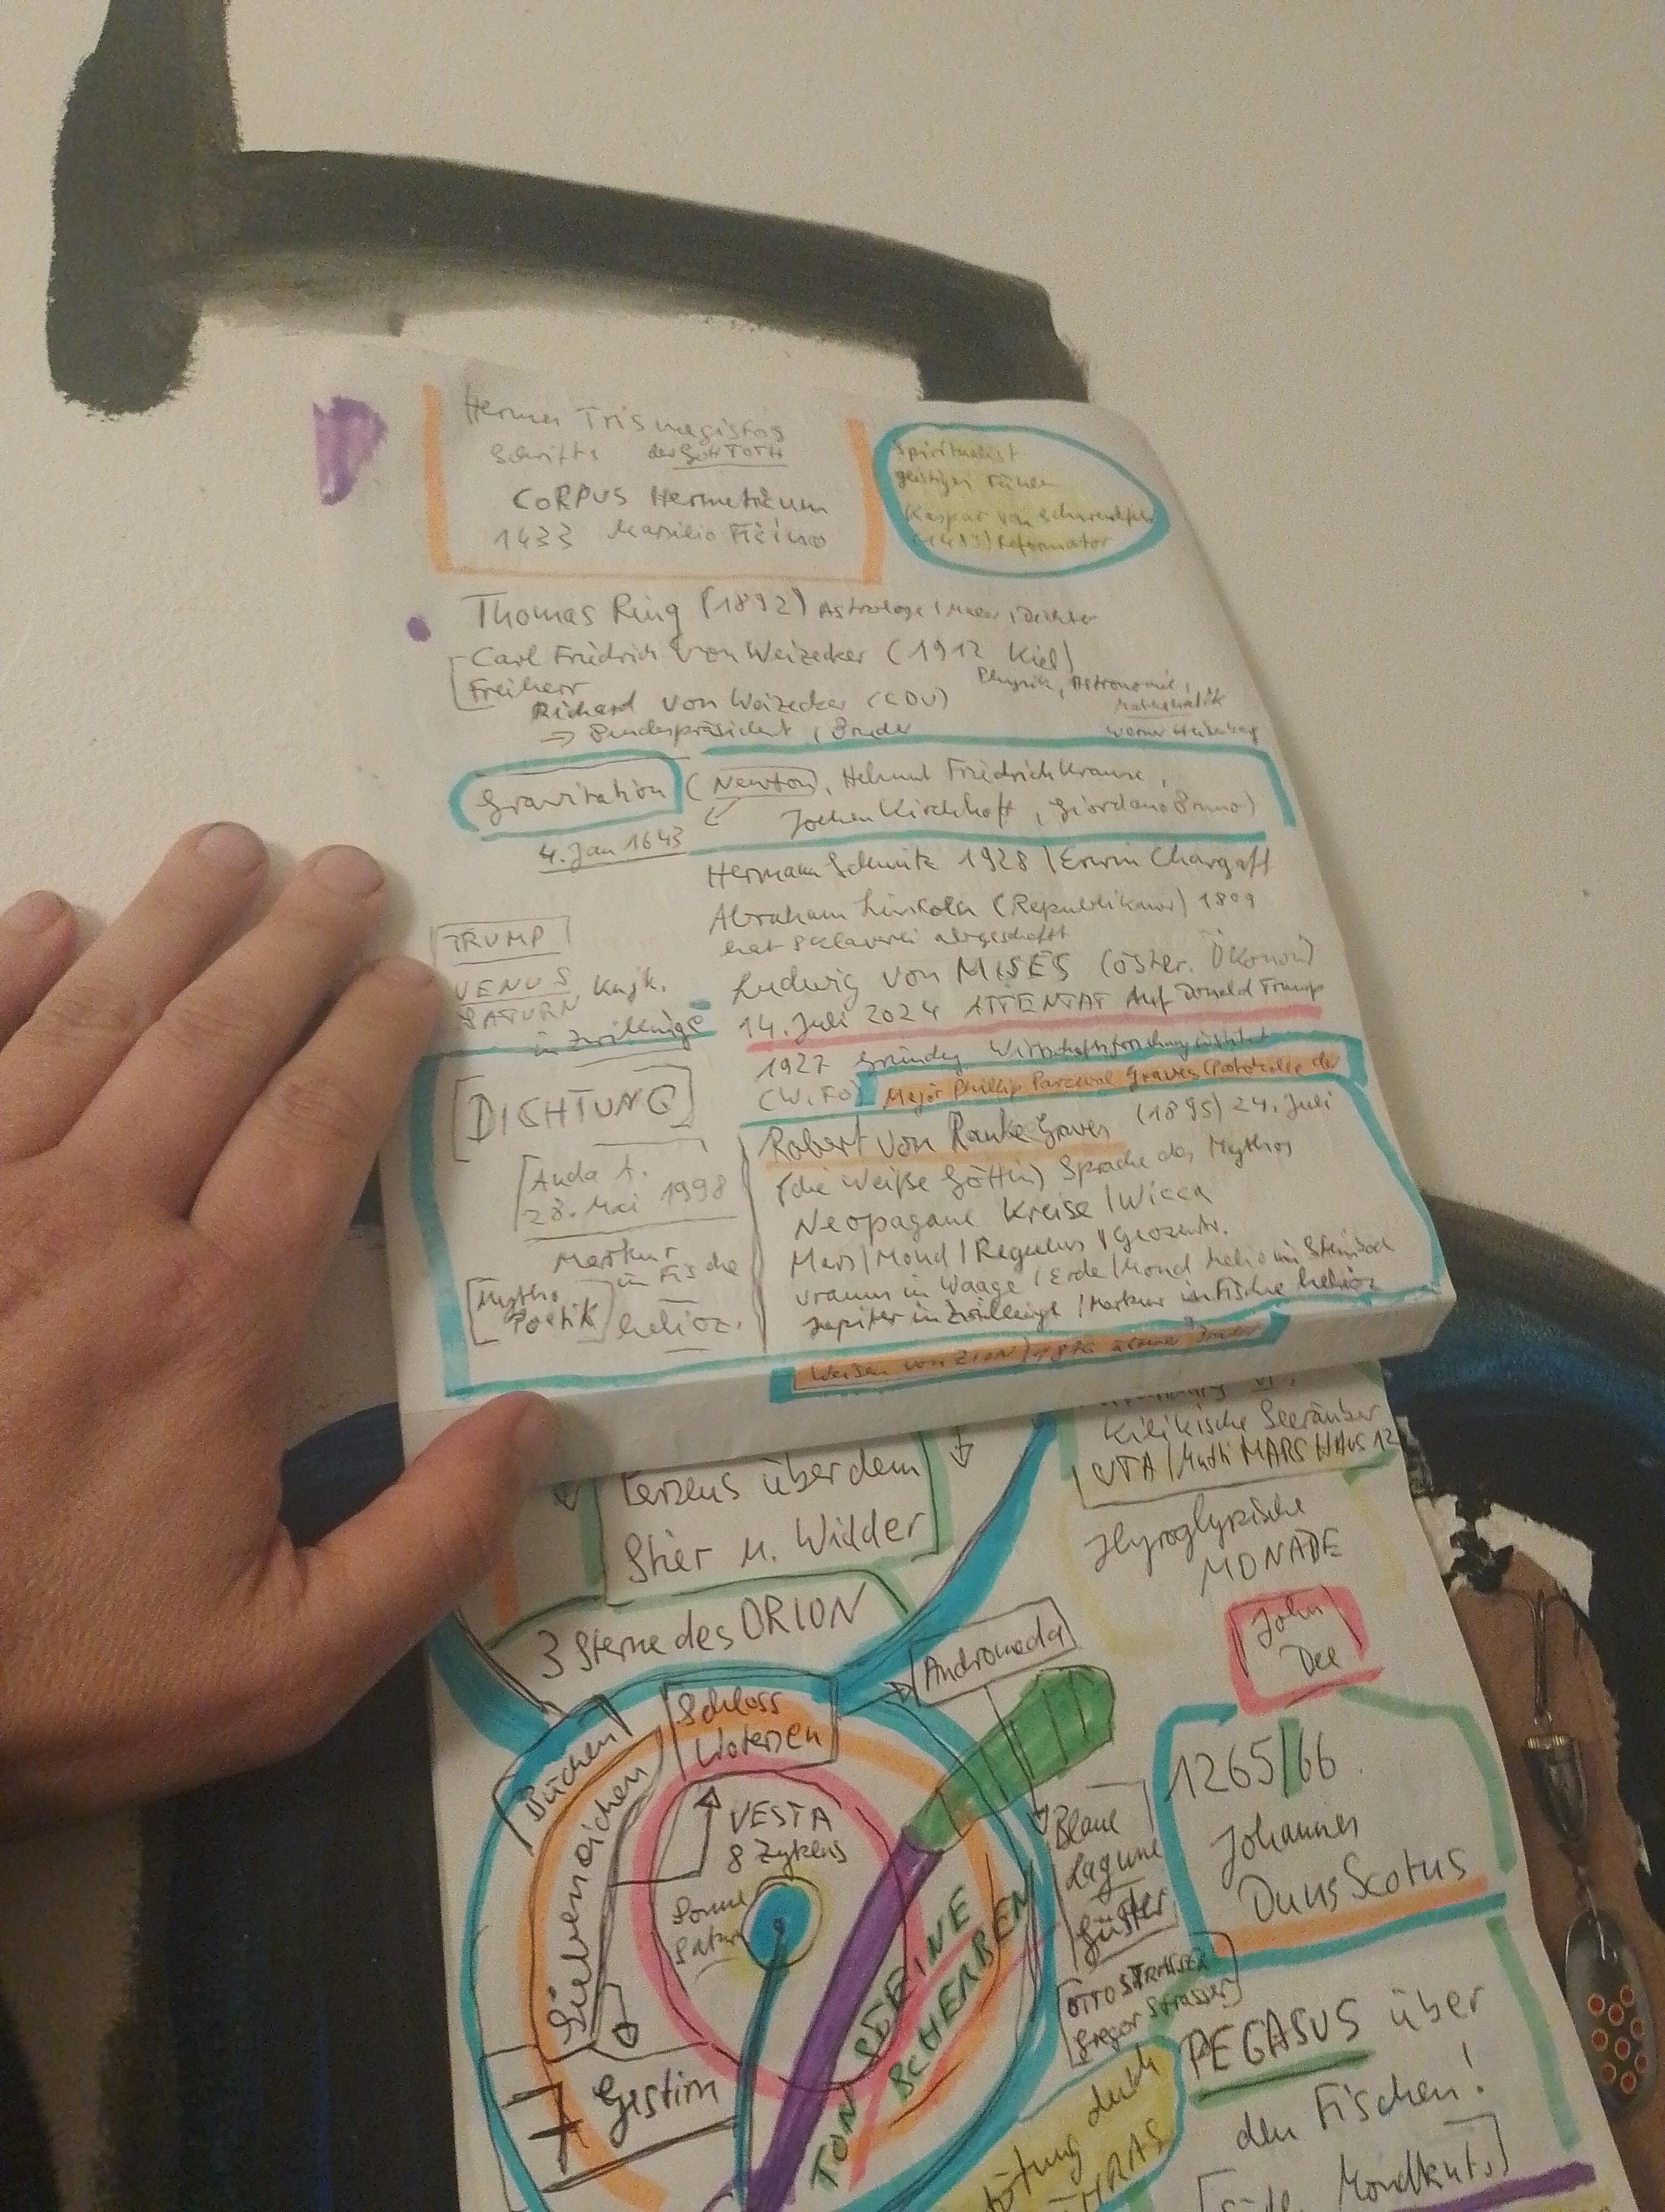 Hermes Trismegistos
Schrifts der Gott TOTH
CORPUS Hermeticum
1433 Marsilio Ficino
Spiritualist
geistiger Führer
Kaspar von
Reformator
Thomas Ring (1892) Astrologe / Maler / Dichter
Carl Friedrich von Weizecker (1912 Kiel)
Freiherr
Physik, Astronomie,
Mathematik
Richard von Weizecker (CDU)
→ Bundespräsident, Bruder
Werner
Gravitation (Newton, Helmut Friedrich Krause,
Jochen Kirchhoff, Giordano Bruno)
4. Jan 1643
Hermann Schmitz 1928 / Erwin Chargaff
Abraham Linkoln (Republikaner) 1809
hat Sklaverei abgeschafft
TRUMP
VENUS
SATURN Konjk.
in Zwillinge
Ludwig von MISES (öster. Ökonom)
14. Juli 2024 ATTENTAT Auf Donald Trump
1927 Gründg Wirtschaftsforschungsinstitut
(WIFO) Major Phillip Parceval Graves (Protokolle der
DICHTUNG
Anda A.
28. Mai 1998
Merkur
in Fische
Mytho
Poetik
helioz.
Robert von Ranke Graves (1895) 24. Juli
(die Weiße Göttin) Sprache des Mythos
Neopagane Kreise / Wicca
Mars / Mond / Regulus Geozentr.
Uranus in Waage / Erde / Mond helio im Steinbock
Jupiter in Zwillinge / Merkur in Fische helioz
Weisen von ZION)
Kilikische Seeräuber
MARS HAUS 12
über dem
Stier u. Widder
Hyroglyphische
MONADE
3 Sterne des ORION
John
Dee
Andromeda
Büchen
Schloss
Wotersen
Siebeneichen
VESTA
8 Zyklus
Sonne
Saturn
1265/66
Johannes
Duns Scotus
Blaue
Lagune
Güster
OTTO STRASSER
Gregor Strasser
TON STEINE
SCHERBEN
Gestirn
PEGASUS über
den Fischen!
durch
Mondknts